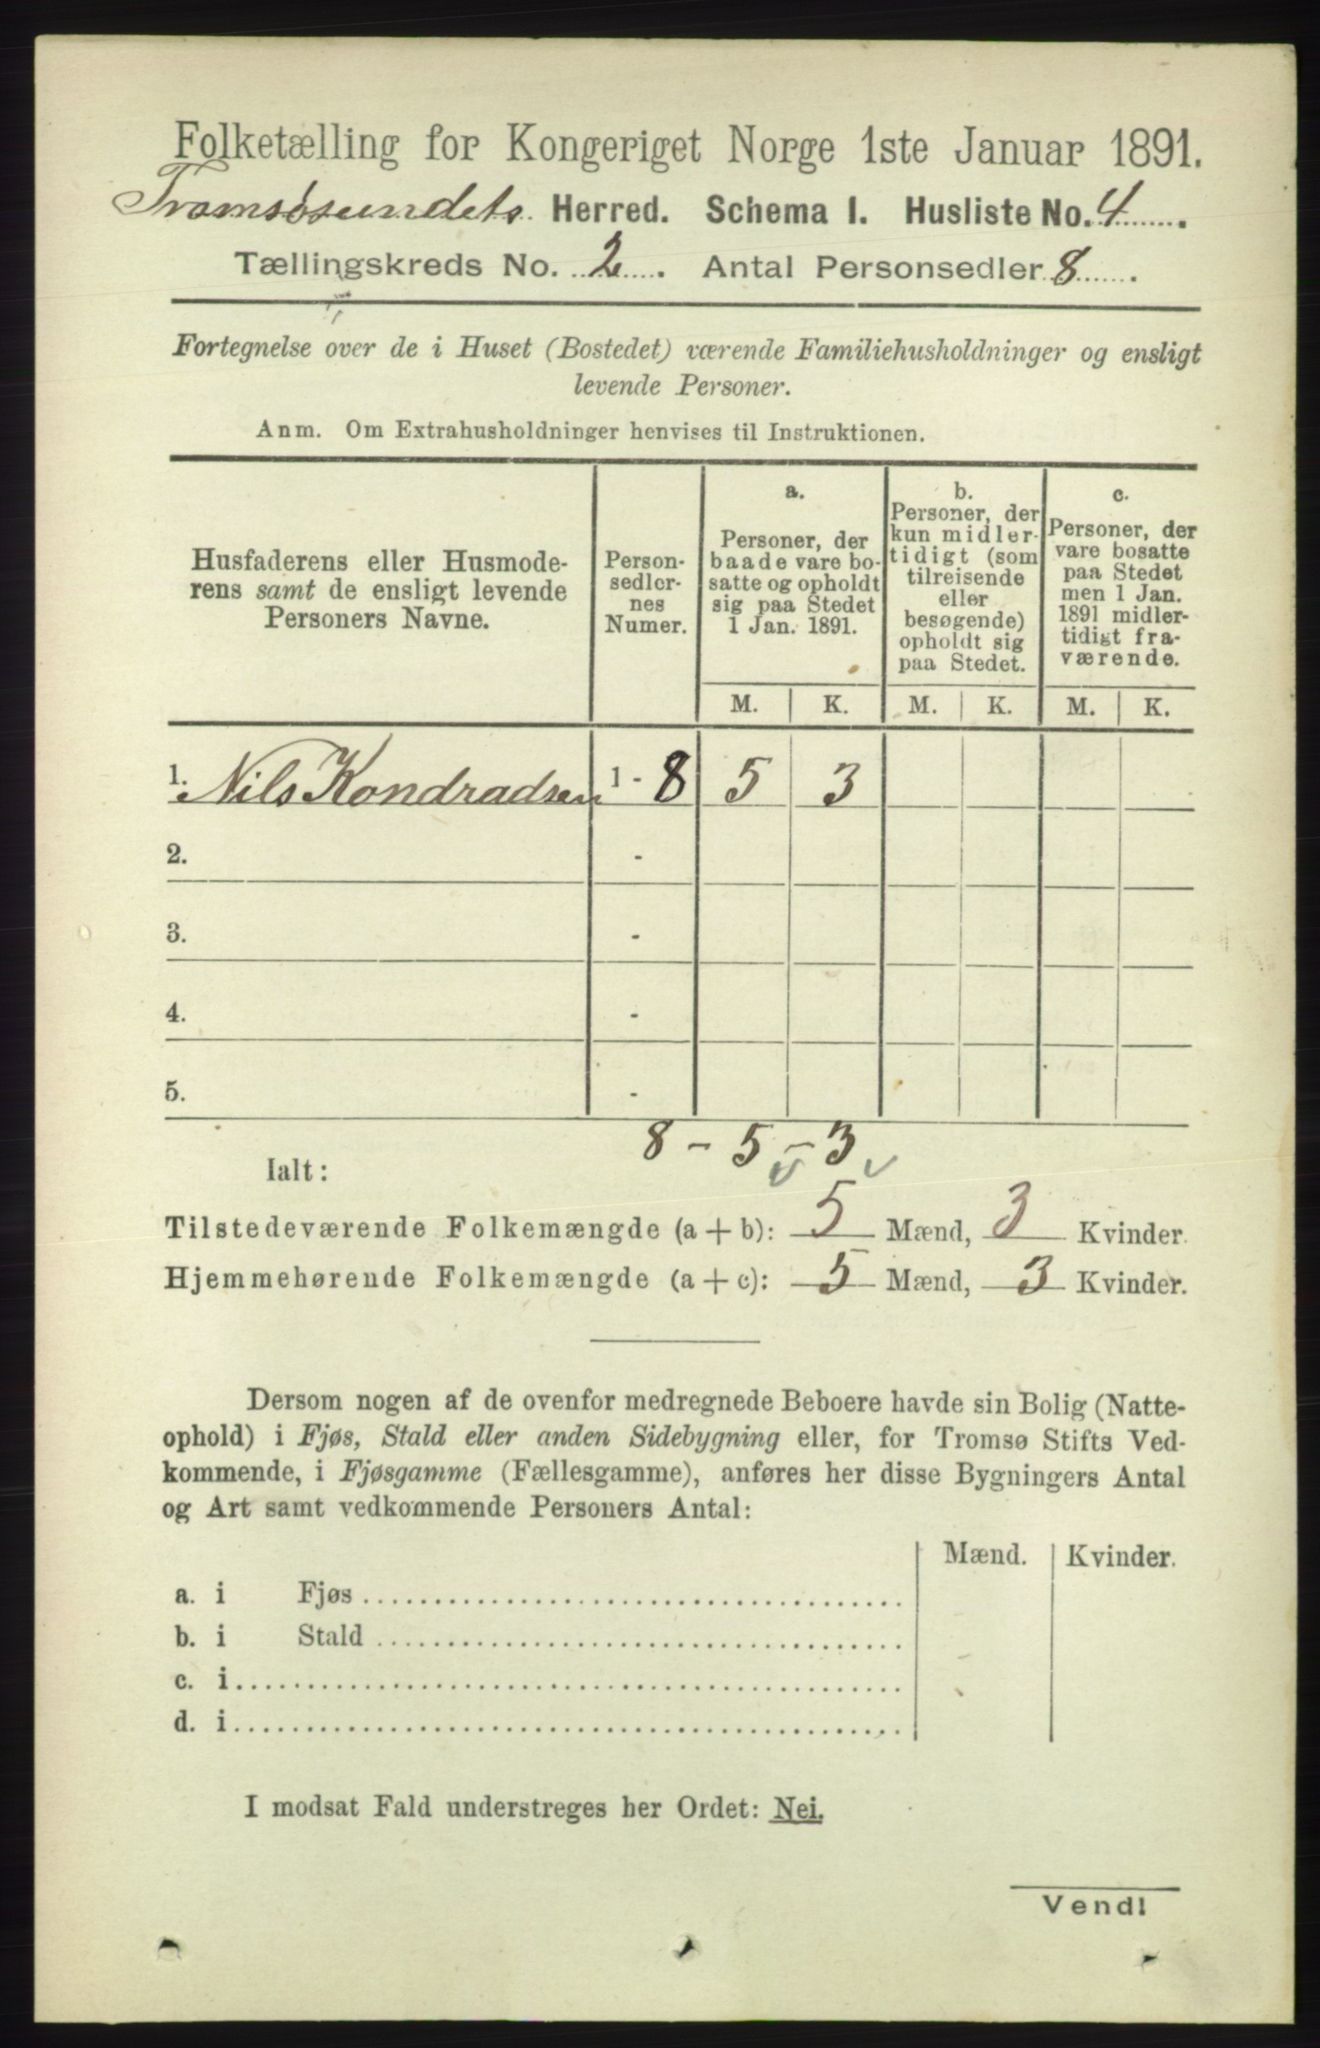 Folketælling for Kongeriget Norge 1ste Januar 1891.
Tromsøsundets Herred. Schema I. Husliste No. 4.
Tællingskreds No. 2. Antal Personsedler 8.
Fortegnelse over de i Huset (Bostedet) værende Familiehusholdninger og ensligt
levende Personer.
Anm. Om Extrahusholdninger henvises til Instruktionen.
Husfaderens eller Husmode-
rens samt de ensligt levende
Personers Navne.
Person-
sedler-
nes
Numer.
a.
Personer, der
baade vare bo-
satte og opholdt
sig paa Stedet
1 Jan. 1891.
b.
Personer, der
kun midler-
tidigt (som
tilreisende
eller
besøgende)
opholdt sig
paa Stedet.
c.
Personer, der
vare bosatte
paa Stedet
men 1 Jan.
1891 midler-
tidigt fra-
værende.
M. K. M. K. M. K.
1. Nils Kondradsen 1 - 8 5 3
2. -
3. -
4. -
5. -
8 - 5 - 3
Ialt:
Tilstedeværende Folkemængde (a + b): 5 Mænd, 3 Kvinder.
Hjemmehørende Folkemængde (a + c): 5 Mænd, 3 Kvinder.
Dersom nogen af de ovenfor medregnede Beboere havde sin Bolig (Natte-
ophold) i Fjøs, Stald eller anden Sidebygning eller, for Tromsø Stifts Ved-
kommende, i Fjøsgamme (Fællesgamme), anføres her disse Bygningers Antal
og Art samt vedkommende Personers Antal:
Mænd. Kvinder.
a. i Fjøs
b. i Stald
c. i
d. i
I modsat Fald understreges her Ordet: Nei.
Vend!